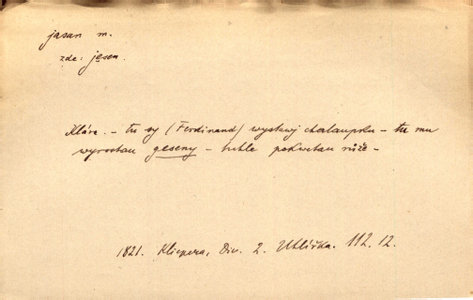 jasan m.
zde: jesen.
Klára. – tu sy (Ferdinand) wystawj chalaupku – tu mu
wyrostau geseny – tuhle pokwetau růže –
1821. Klicpera, Div. 2. Uhlířka. 112. 12.